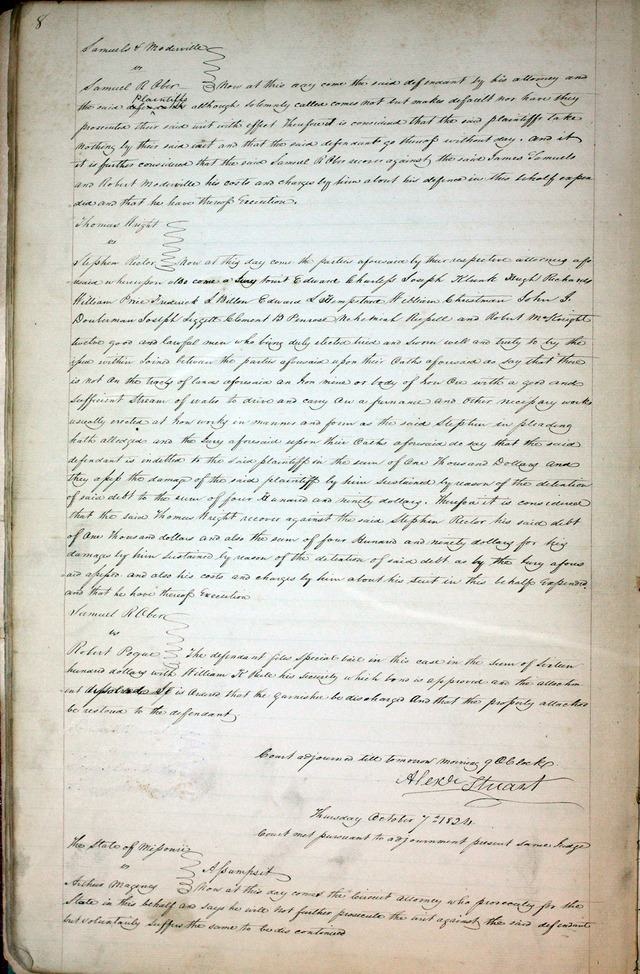 8
Samuels & Moderville
vs
Samuel R Ober Now at this day come the said defendant by his attorney and
the said plaintiffs although solemnly called comes not but makes default nor have they
prosecuted their said suit with effect Therefore it is considered that the said plaintiffs take
nothing by their said suit and that the said defendant go thereof without day. and it
it is further considered that the said Samuel R Ober recover against the said James Samuels
and Robert Moderville his costs and charges by him about his defence in this behalf expen
ded and that he have thereof Execution.
Thomas Wright
vs
Stephen Rector Now at this day come the parties aforesaid by their respective attornies afo
resaid whereupon also come a Jury to wit Edward Charless Joseph Klunk Hugh Richards
William Price Frederick L Billon Edward L Hempstead William Chrestman John G.
Douberman Joseph Liggett Clement B Penrose Nehemiah Russell and Robert McKnight
twelve good and lawful men who being duly elected tried and sworn well and truly to try the
issue within Joined between the parties aforesaid upon their Oaths aforesaid do say that there
is not on the tracts of land aforesaid an Iron mine or body of Iron Ore with a good and
sufficient stream of water to drive and carry on a furnace and other necessary works
usually erected at Iron works in manner and form as the said Stephen in pleading
hath alledged and the Jury aforesaid upon their Oaths aforesaid do say that the said
defendant is indebted to the said plaintiff in the sum of One Thousand Dollars and
they assess the damage of the said plaintiff by him sustained by reason of the detention
of said debt to the sum of four Hundred and ninety dollars. Therefore it is considered
that the said Thomas Wright recover against the said Stephen Rector his said debt
of One thousand dollars and also the sum of four Hundred and ninety dollars for his
damages by him sustained by reason of the detention of said debt as by the Jury afores
aid assessed and also his costs and charges by him about his suit in this behalf Expended
and that he have thereof Execution
Samuel R Ober
vs
Robert Pogue The defendant files special bail in this case in the sum of sixteen
hundred dollars with William K Rule his security which bond is approved and the attachm
ent dissolved It is Ordered that the garnishee be discharged And that the property attached
be restored to the defendant
Court adjourned till tomorrow morning 9 OClock.
Alexr Stuart
Thursday October 7th 1824.
Court met pursuant to adjournment present same Judge
The State of Missouri
vs Assumpsit
Arthur Magenis Now at this day comes the Circuit attorney who prosecutes for the
State in this behalf and says he will not further prosecute the suit against the said defendant
but voluntarily suffers the same to be dis continued